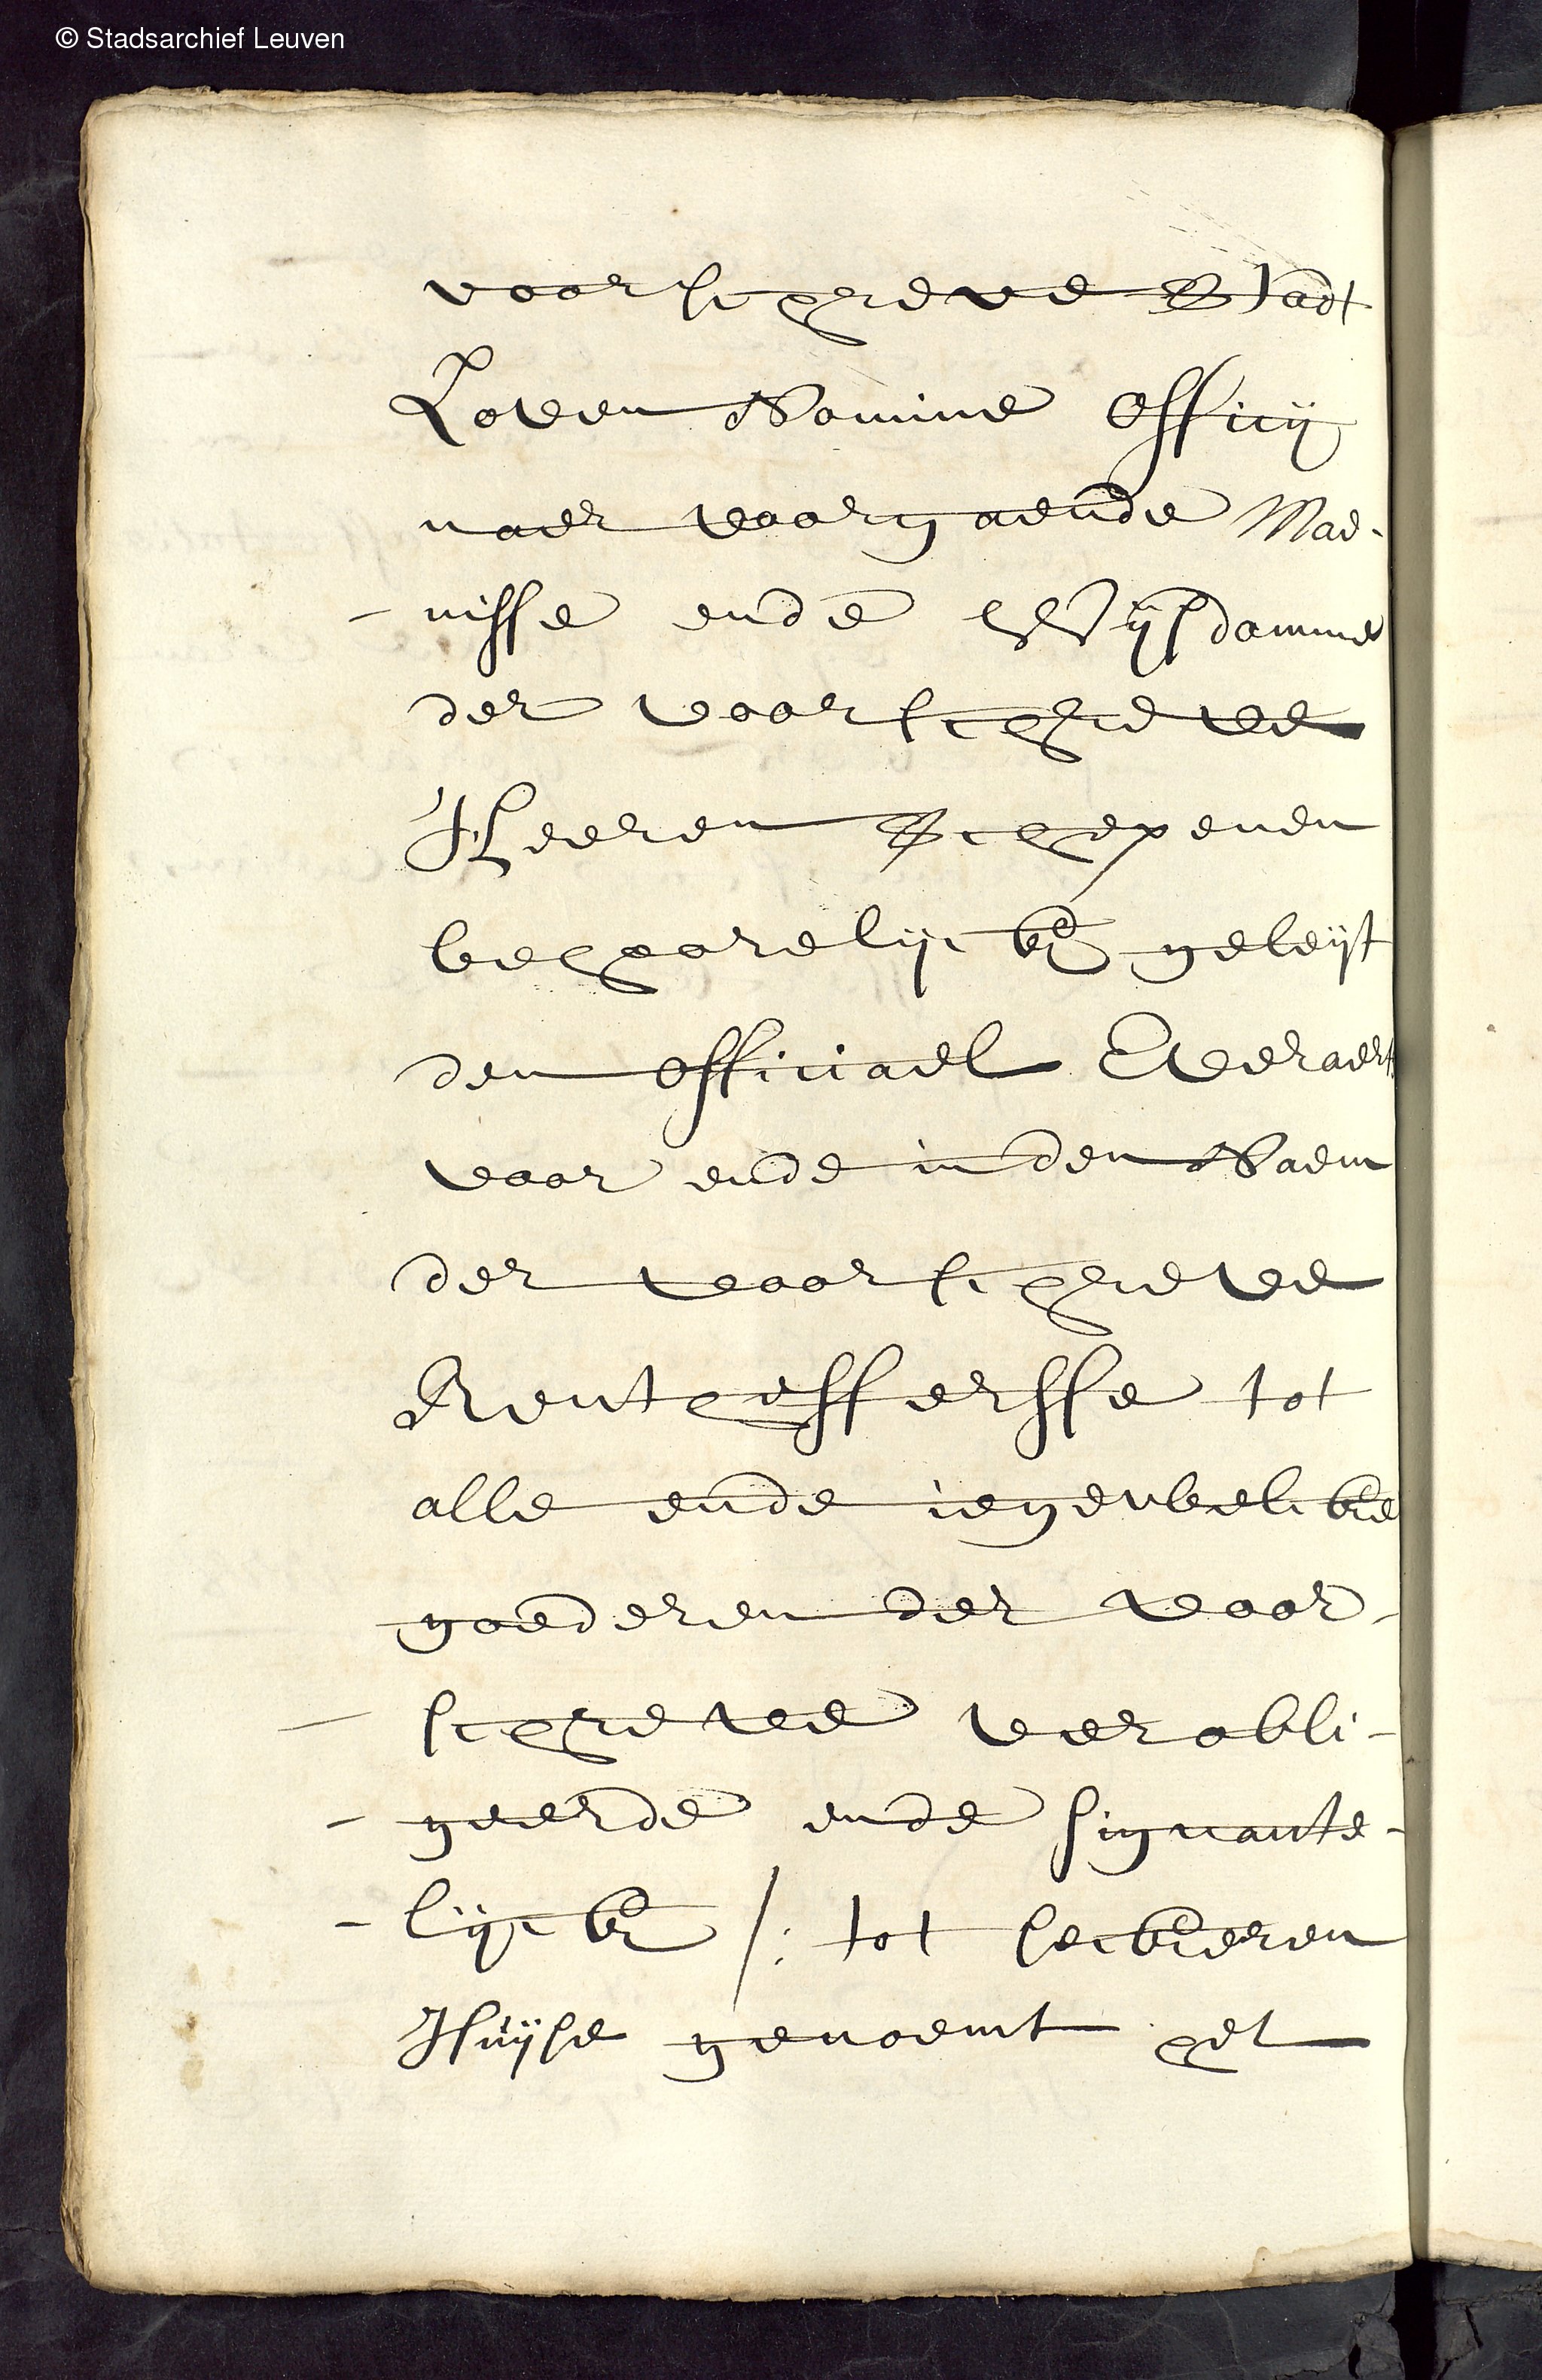 © Stadsarchief Leuven
voorschreve Stadt
Loven Nomine Officij
naer voorgaende Mae-
- nisse ende Wijsdomme
der voorschreve
Heeren Schepenen
behoorelijck geleijt
den officiael Everaerts
voor ende in den Naem
der voorschreve
Renthefferssse tot
alle ende iegewelcke
goederen der voor-
- schreve verobli-
- geerde ende signante-
- lijck /: tot seckeren
Huijse genoemt het